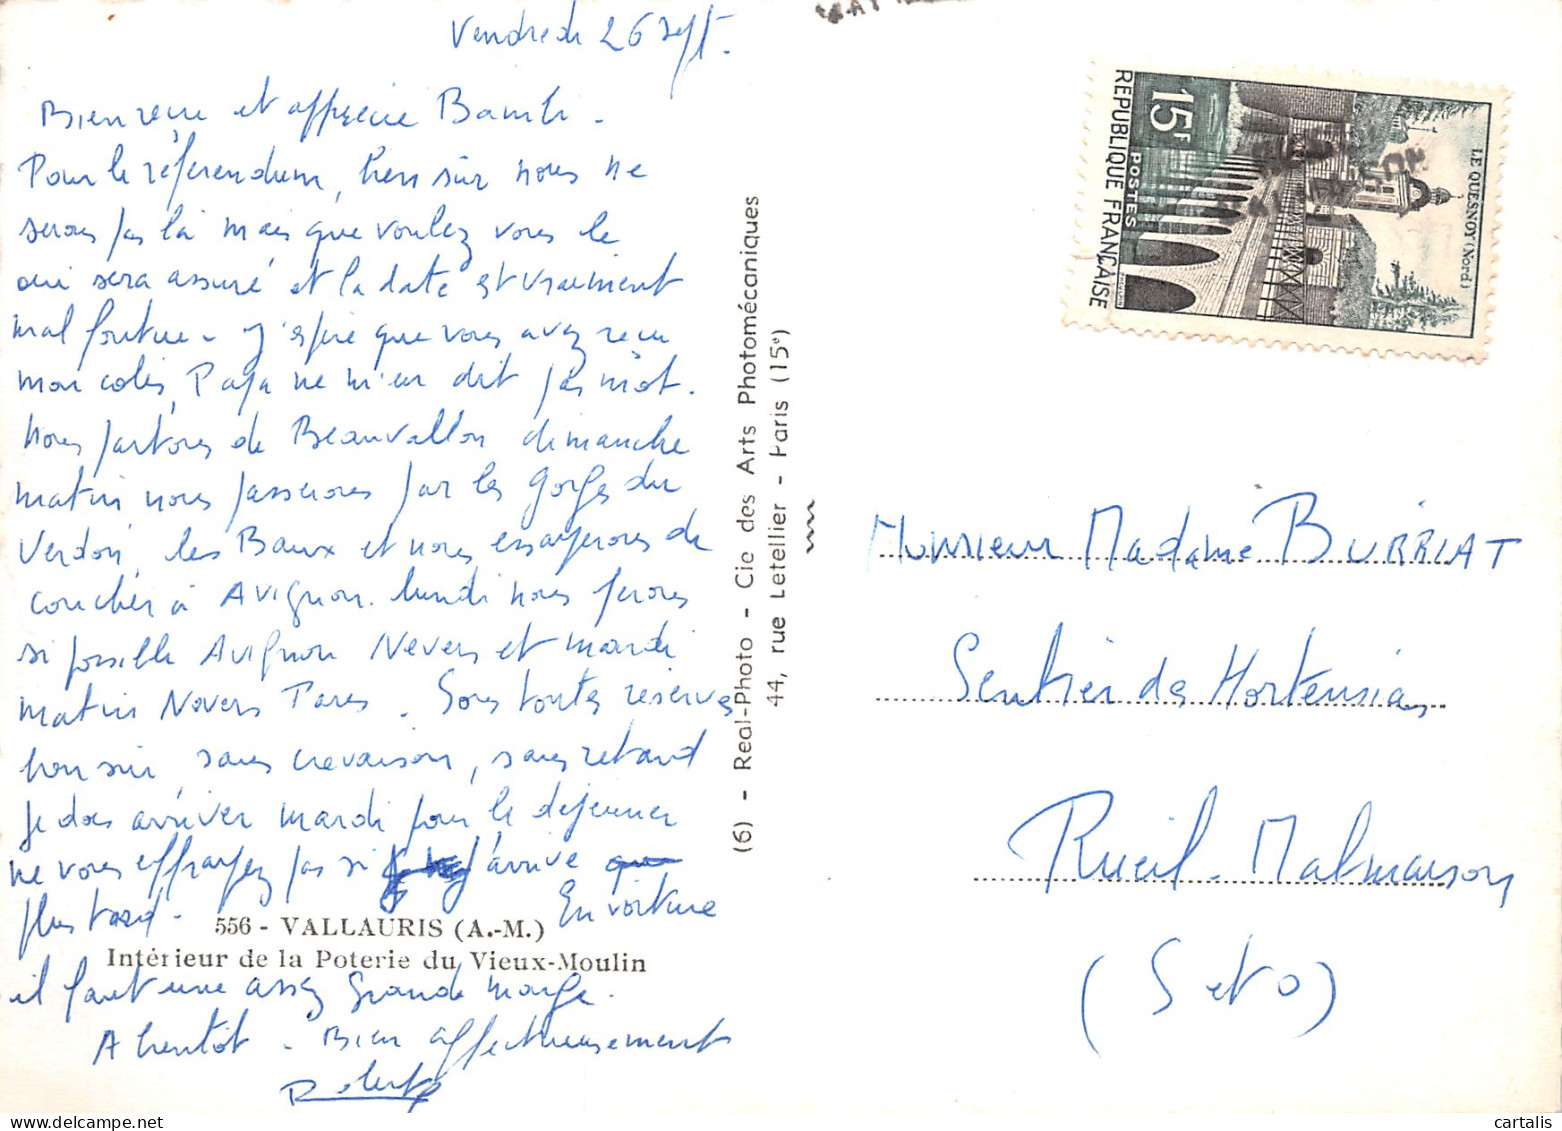 Vendredi 26 sept.
Bien reçu et apprécié Bambi.
Pour le référendum, bien sûr nous ne
serons pas là mais que voulez vous le
oui sera assuré et la date est vraiment
mal foutue - J'espère que vous avez reçu
mon colis, Papa ne m'en dit pas mot.
Nous partons de Beauvallon dimanche
matin nous passerons par les Gorges du
Verdon, les Baux et nous essayerons de
coucher à Avignon. lundi nous ferons
si possible Avignon Nevers et mardi
matin Nevers Paris. Sous toutes réserves
bien sûr, sans crevaison, sans retard
je dois arriver mardi pour le déjeuner
ne vous effrayez pas si j'arrive
plus tard. En voiture
il faut une assez grande marge.
A bientôt. Bien affectueusement
556 - VALLAURIS (A.-M.)
Intérieur de la Poterie du Vieux-Moulin
(6) - Real-Photo - Cie des Arts Photomécaniques
44, rue Letellier - Paris (15e)
15F
POSTES
REPUBLIQUE FRANÇAISE
LE QUESNOY (Nord)
Monsieur Madame BURRIAT
Sentier des Hortensias
Rueil-Malmaison
(S et O)
cartalis